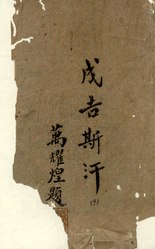 成吉斯汗
萬耀煌題